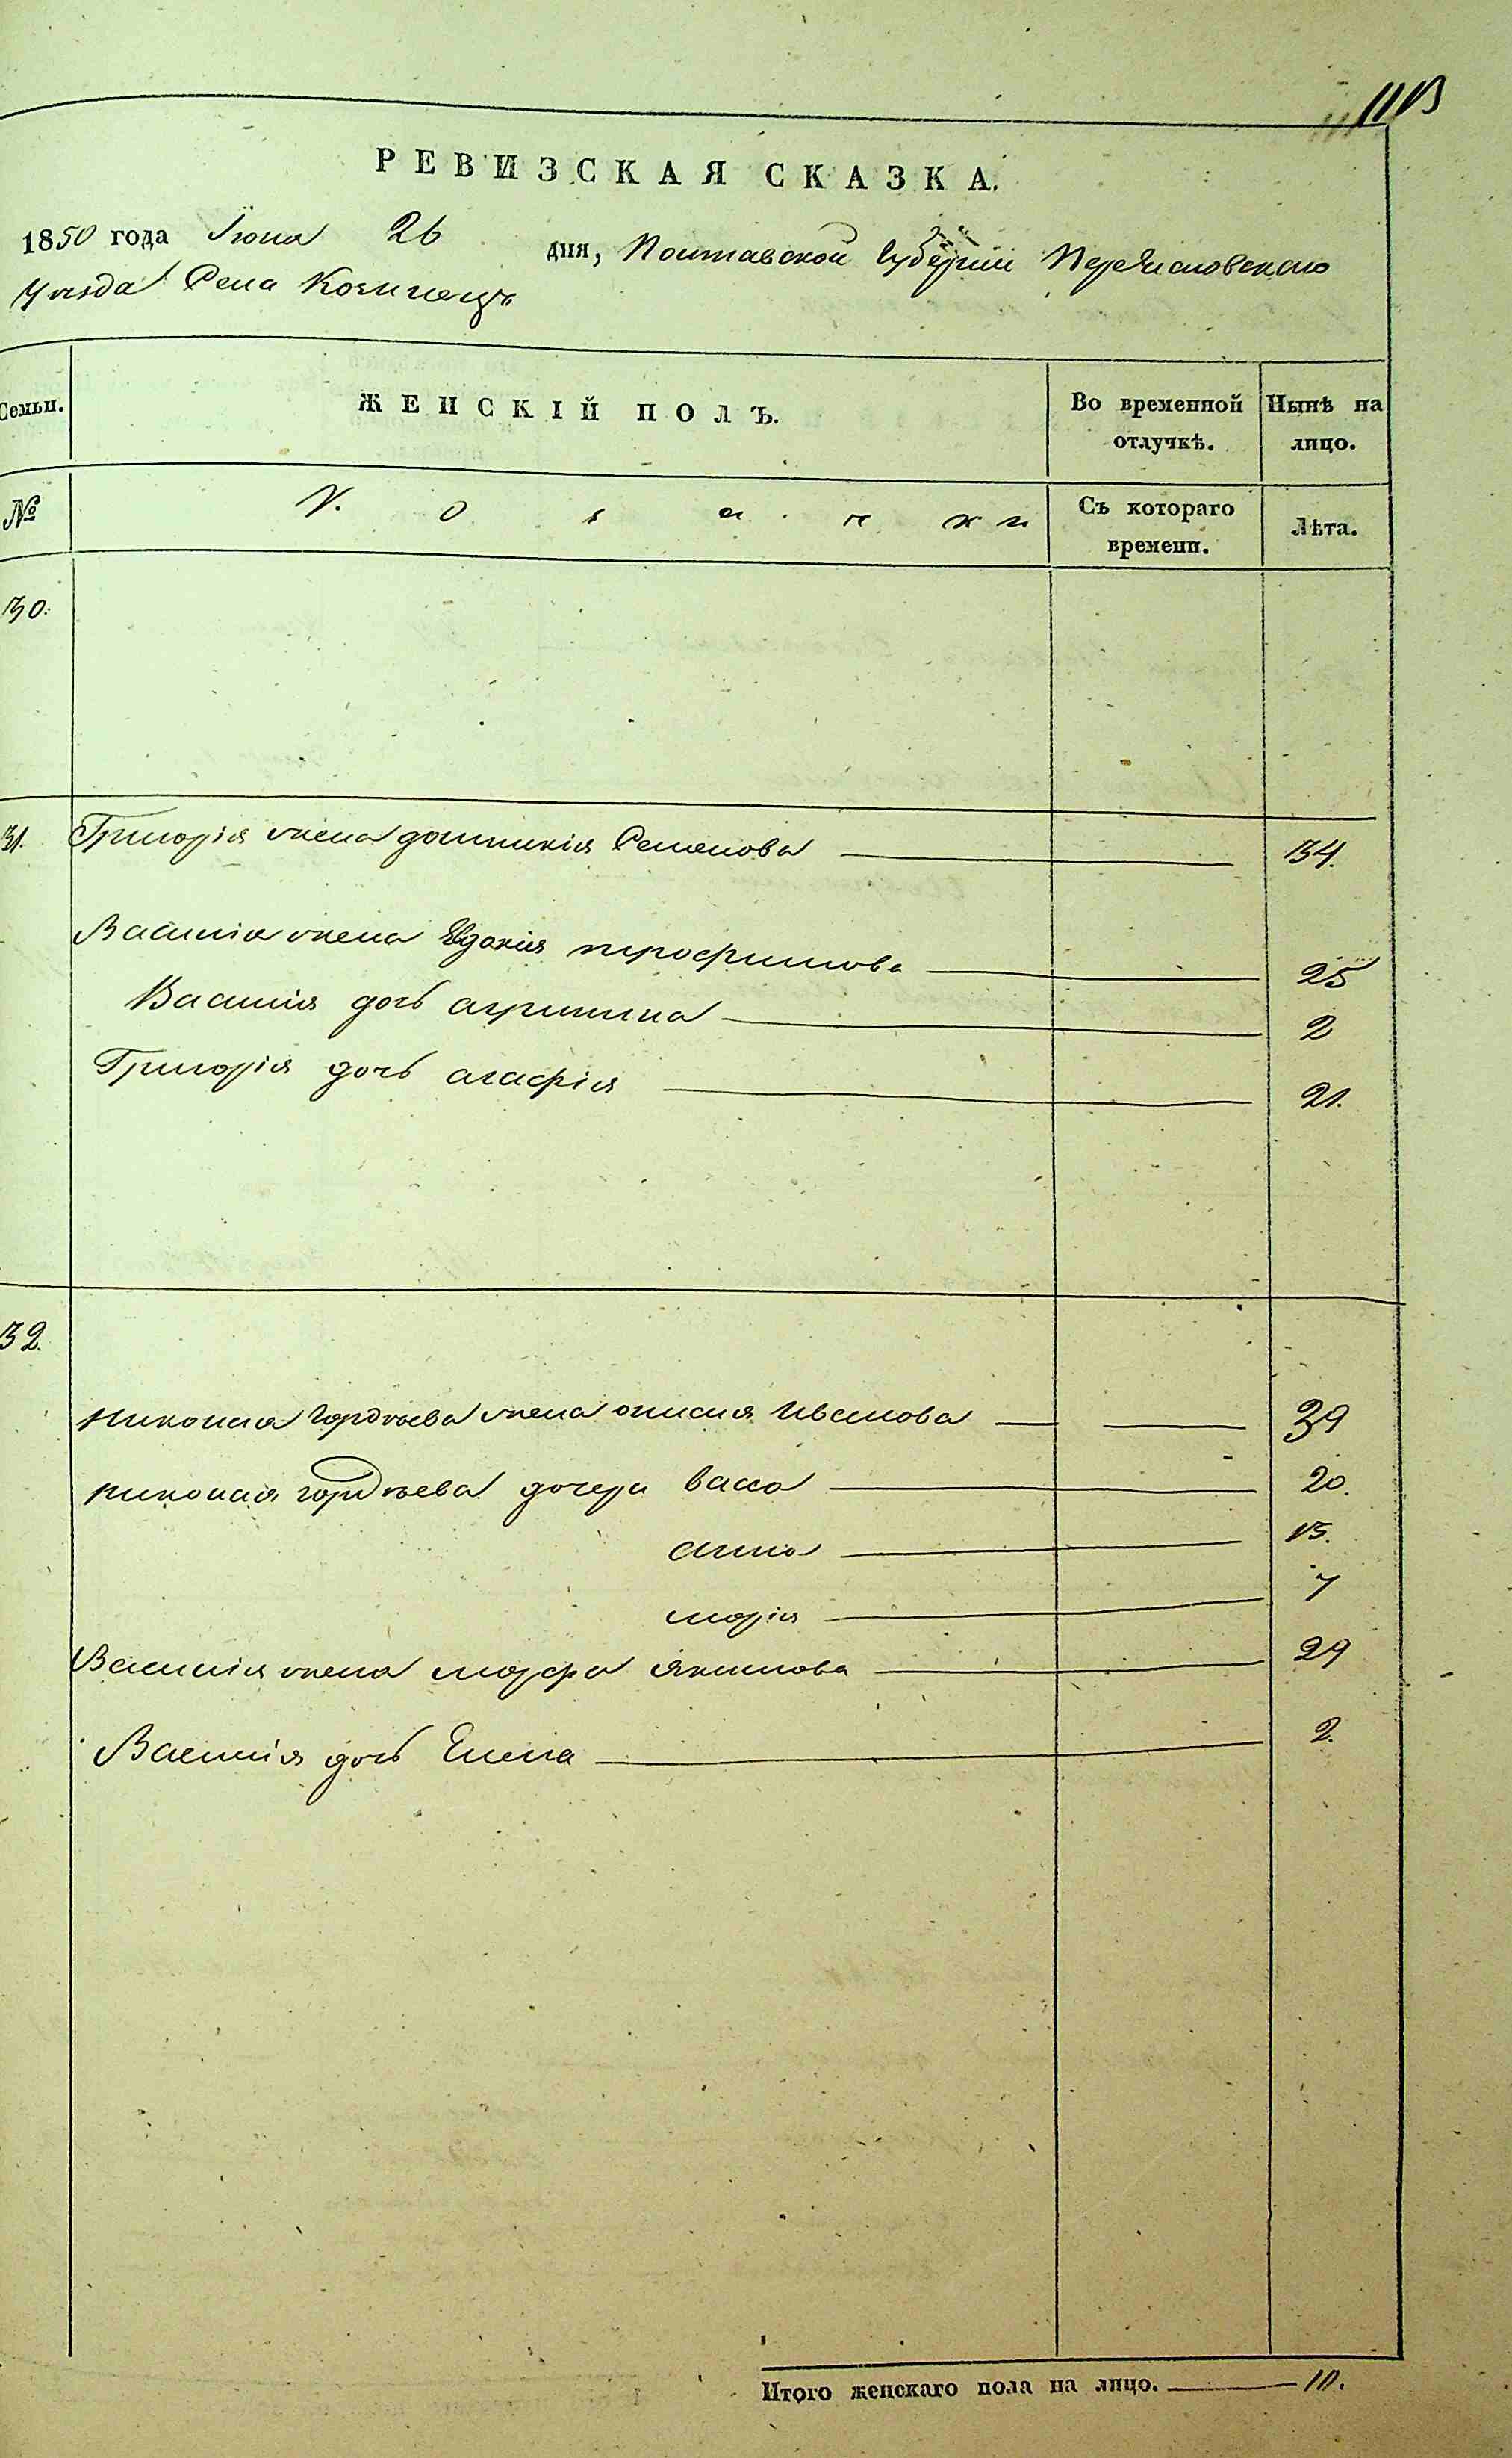 РЕВИЗСКАЯ СКАЗКА.
1850 года Іюня 26 дня, Полтавской Губерніи Переясловскаго
Уѣзда Села Козинецъ
Семьи.
ЖЕНСКІЙ ПОЛЪ.
Во временной отлучкѣ.
Нынѣ на лицо.
№
К о з а ч к и
Съ котораго времени.
Лѣта.
30.
31. Григорія жена домникія Семенова 34.
Василія жена Евдокія трофимова 25
Василія дочь агрипина 2
Григорія дочь агафія 21.
32.
николая гордѣева жена онисия Иванова 39
николая гордѣева дочери васса 20.
анна 15.
марія 7
Василія жена марфа Якимова 29
Василія дочь Елена 2.
Итого женскаго пола на лицо. 10.